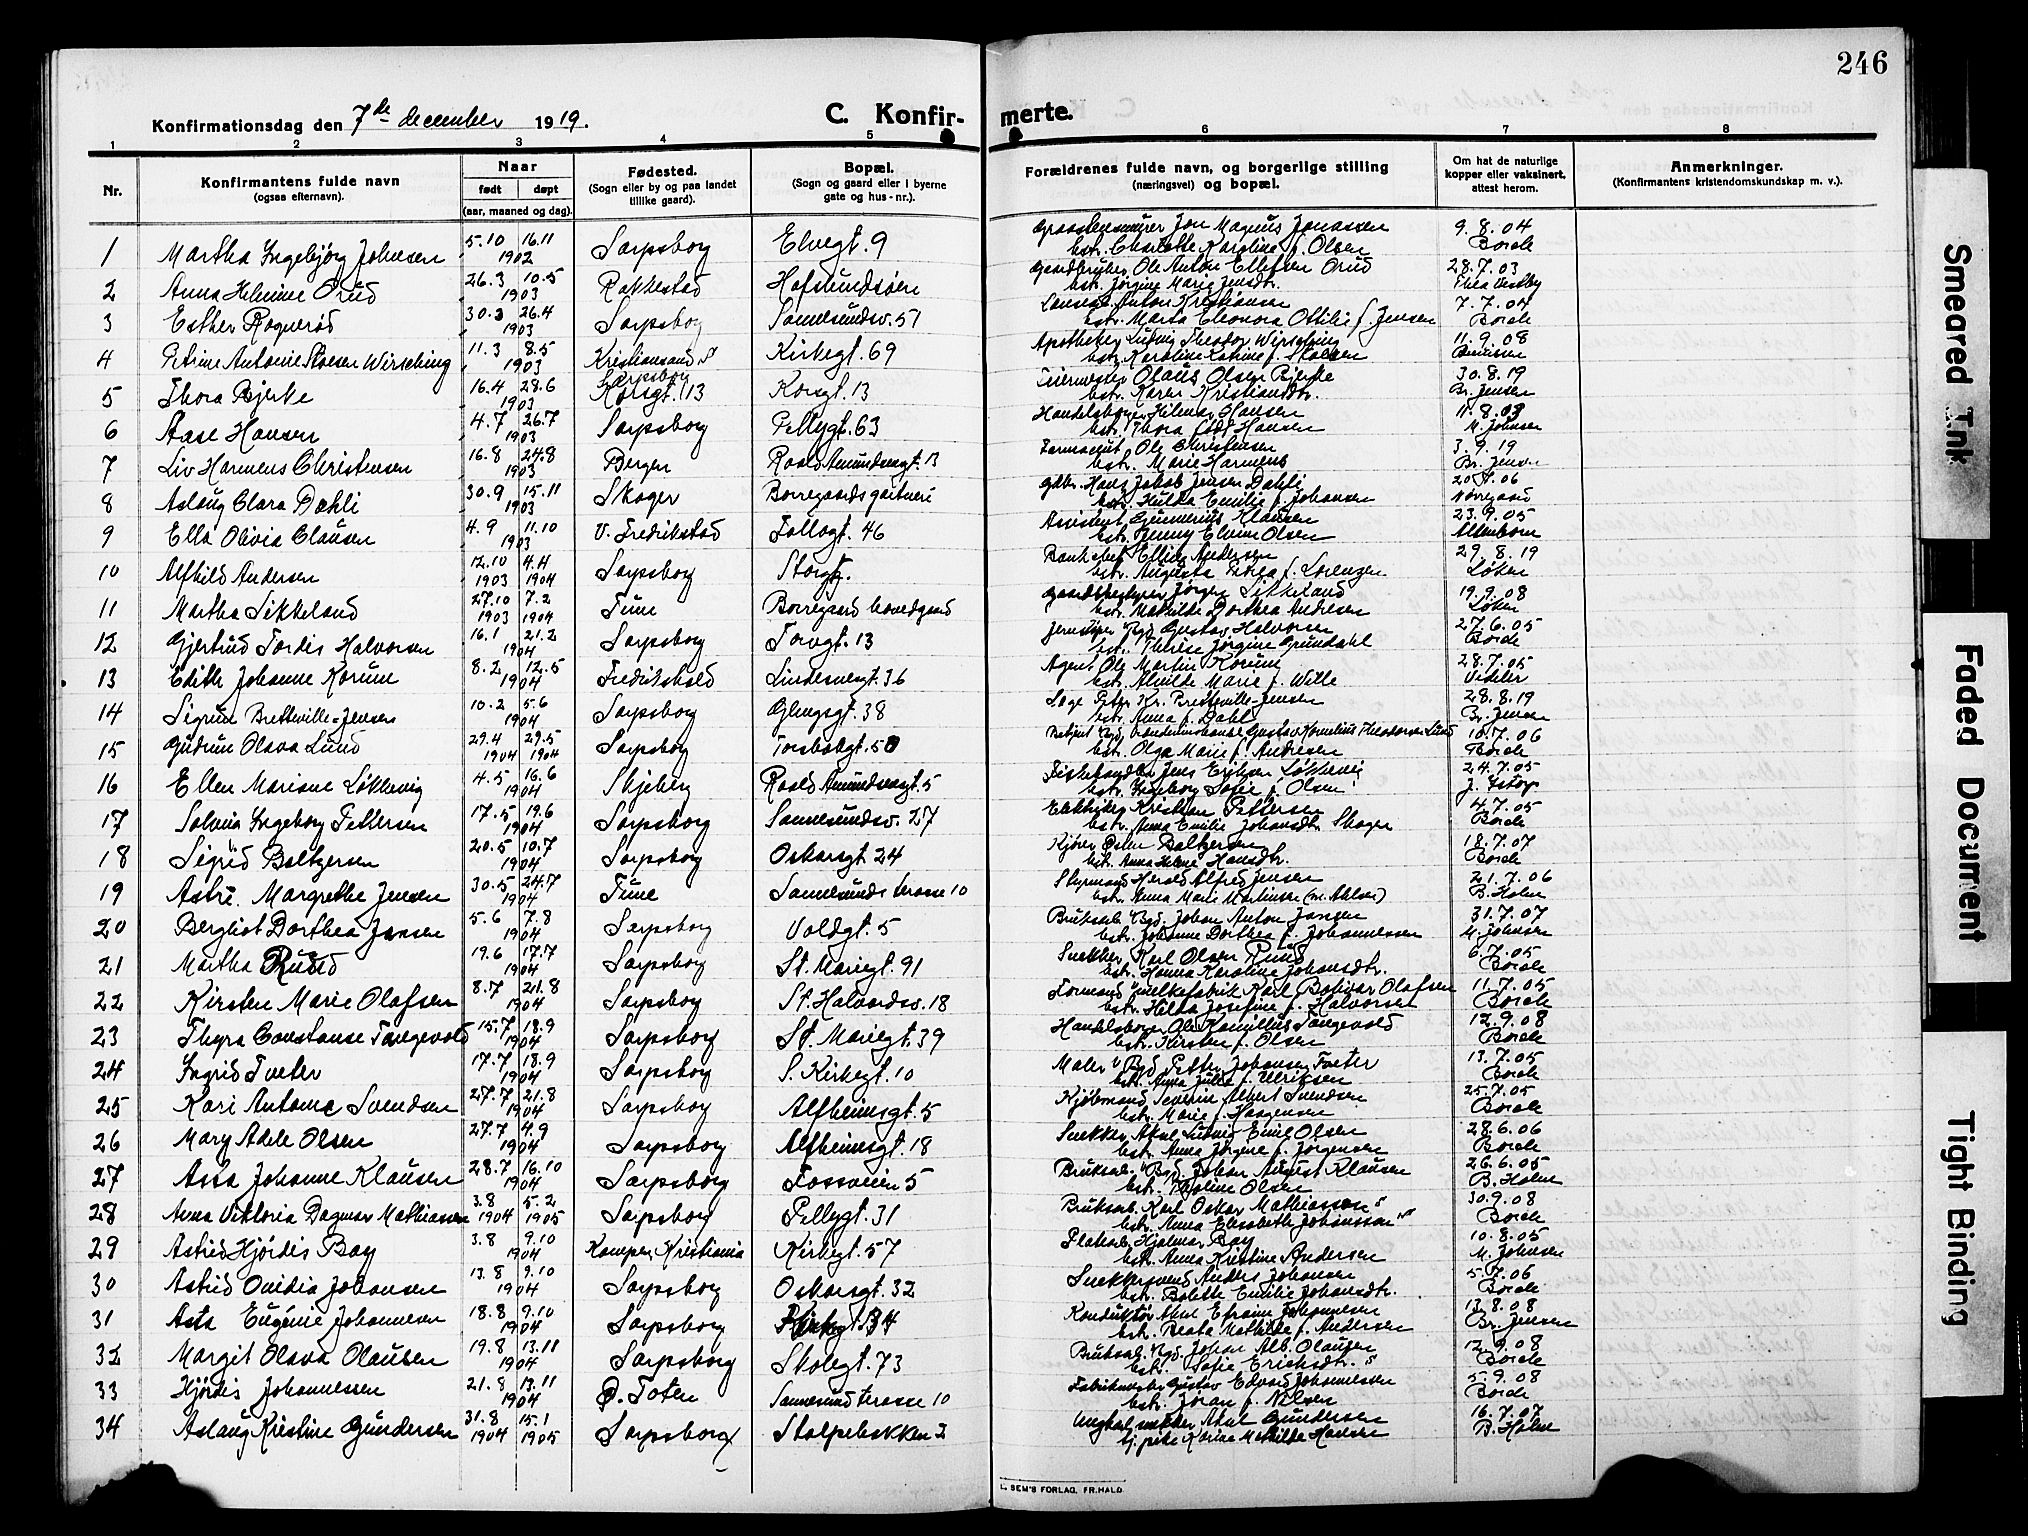 246
Konfirmationsdag den 7de december 1919.
C. Konfirmerte.
1 2 3 4 5 6 7 8
Nr.
Konfirmantens fulde navn
(ogsaa efternavn).
Naar
født døpt
(aar, maaned og dag).
Fødested.
(Sogn eller by og paa landet
tillike gaard).
Bopæl.
(Sogn og gaard eller i byerne
gate og hus-nr.).
Forældrenes fulde navn, og borgerlige stilling
(næringsvei) og bopæl.
Om hat de naturlige
kopper eller vaksinert,
attest herom.
Anmerkninger.
(Konfirmantens kristendomskundskap m. v.).
1 Martha Ingebjørg Johnsen 5.10 16.11 1902 Sarpsborg Elvegt. 9 Jon Magnus Jonassen 9.8.04
hstr. Charlotte Karoline f. Olsen Borch
2 Anna Helmine Ørud 26.3 10.5 1903 Rakkestad Hafslundsøen Gaardbruker Ole Anton Ellefsen Ørud 28.7.03
hstr. Jørgine Marie Jensdtr. Thea Vestby
3 Esther Rognerød 30.3 26.4 1903 Sarpsborg Sannesundsv. 51 Anton Kristiansen 7.7.04
hstr. Marta Eleonora Ottilie f. Jensen Borch
4 Petrine Antonie Wirsching 11.3 8.5 1903 Kristiansund Kirkegt. 69 Apotheker Ludvig Theodor Wirsching 11.9.08
hstr. Karoline Katrine f.
5 Thora Bjerke 16.4 28.6 1903 Sarpsborg Korsgt. 13 Korsgt. 13 Olaus Olsen Bjerke 30.8.19
hstr. Karen Kristiansdtr. Br. Jensen
6 Aase Hansen 4.7 26.7 1903 Sarpsborg Pellygt. 63 Handelsborger Hilmar Hansen 11.8.03
hstr. Thora født Hansen M. Johnsen
7 Liv Harmens Christensen 16.8 24.8 1903 Bergen Roald Amundsensgt. 13 Farmaceut Ole Christensen 3.9.19
hstr. Marie Harmens Br. Jensen
8 Aslaug Clara Dahli 30.9 15.11 1903 Skoger Borregaards gartneri Gdbr. Hans Jakob Jensen Dahli
hstr. Hulda Emilie f. Johansen Nørregaard
9 Ella Olivia Clausen 4.9 11.10 1903 V. Fredrikstad Tollogt. 46 Assistent Gunnerius Klausen 23.9.05
hstr. Jenny Elvine Olsen Altenborn
10 Alfhild Andersen 12.10 4.4 1903 1904 Sarpsborg Storgt. Bankchef Elling Andersen 29.8.19
hstr. Augusta Thea f. Lorenzen Løken
11 Martha Sikkeland 27.10 7.2 1903 1904 Tune Borregaard hovedgaard Gaardsbestyrer Jørgen Sikkeland 19.9.08
hstr. Mathilde Dorthea Andresen Løken
12 Gjertrud Tordis Halvorsen 16.1 21.2 1904 Sarpsborg Torvgt. 13 Gustav Halvorsen 27.6.05
hstr. Therese Jørgine Grundahl Borch
13 Edith Johanne Korum 8.2 12.5 1904 Fredrikshald Lindemansgt. 36 Agent Ole Martin Korum 28.7.05
hstr. Alvilde Marie f. Wille Videler
14 Sigrun Bretteville-Jensen 10.2 5.6 1904 Sarpsborg Glengsgt. 38 Læge Peter Kr. Bretteville-Jensen 28.8.19
hstr. Anna f. Dahl Br. Jensen
15 Gudrun Olava Lund 29.4 29.5 1904 1904 Sarpsborg Torsbekgt. 50 Gustav Kornelius Theodorsen Lund 10.7.06
hstr. Olga Marie f. Andresen Borch
16 Ellen Mariane Løkkevig 4.5 16.6 1904 Skjeberg Roald Amundsensgt. 5 Fiskehandler Jens Eriksen Løkkevig 24.7.05
hstr. Ingeborg Sofie f. Olsen
17 Solveig Ingeborg Pettersen 17.5 19.6 1904 Sarpsborg Sannesundsv. 27 Elektriker Kristian Pettersen 14.7.05
hstr. Anna Emilie Johansdtr. Skoger Borch
18 Sigrid Baltzersen 20.5 10.7 1904 Sarpsborg Oskarsgt. 24 Kjører Osten Baltzersen 18.7.07
hstr. Anna Helene Hansdtr. Borch
19 Astri. Margrethe Jensen 30.5 24.7 1904 Tune Sannesunds terasse 10 Styrmand Harald Alfred Jensen 21.7.06
hstr. Anna Marie Martinsen B. Holm
20 Bergliot Dorthea Jansen 5.6 7.8 1904 Sarpsborg Voldgt. 5 Bruksarb. Bgd. Johan Anton Jansen 31.7.07
hstr. Johanne Dorthea f. Johannessen M. Johnsen
21 Martha Ruud 19.6 17.7 1904 Sarpsborg St. Mariegt. 91 Snekker Karl Olsen Ruud 6.7.05
hstr. Hanna Karoline Johansdtr. Borch
22 Kirsten Marie Olafsen 8.7 21.8 1904 Sarpsborg St. Halvardsv. 18 Formand Karl Bolivar Olafsen 11.7.05
hstr. Hilda Josefine f. Halvorsen Borch
23 Thyra Constanse Tangevold 15.7 18.9 1904 Sarpsborg St. Mariegt. 39 Handelsborger Ole Kamillus Tangevold 12.9.08
hstr. Kirsten f. Olsen Borch
24 Ingrid Tveter 17.7 18.9 1904 Sarpsborg S. Kirkegt. 10 Maler Bgd Petter Johansen Tveter 13.7.05
hstr. Anna Julie f. Ulriksen Borch
25 Kari Antonie Svendsen 27.7 21.8 1904 Sarpsborg Alfheimsgt. 5 Kjøbmand Severin Albert Svendsen 25.7.05
hstr. Marie f. Haagensen Borch
26 Mary Adele Olsen 27.7 4.9 1904 Sarpsborg Alfheimsgt. 18 Snekker Axel Ludvig Emil Olsen 28.6.06
hstr. Anna Jørgine f. Jørgensen Borch
27 Asta Johanne Klausen 28.7 16.10 1904 Sarpsborg Fossveien 5 Bruksarb. Bgd. Johan August Klausen 26.6.05
hstr. Karoline Olsen B. Holm
28 Anna Viktoria Dagmar Mathiassen 3.8 5.2 1904 1905 Sarpsborg Pellygt. 31 Bruksarb. Karl Oskar Mathiassen 30.9.08
hstr. Anna Elisabeth Johansson Borch
29 Astrid Hjørdis Bay 3.8 9.10 1904 Kampen, Kristiania Kirkegt. 57 Hjalmar Bay 10.8.05
hstr. Anna Kristine Andersen M. Johnsen
30 Astrid Ovidia Johansen 13.8 9.10 1904 Sarpsborg Oskarsgt. 32 Snekkersvend Anders Johansen 5.7.06
hstr. Bolette Emilie Johansdtr. Borch
31 Asta Eugenie Johannesen 18.8 9.10 1904 Sarpsborg 34 Konduktør Axel Efraim Johannesen 13.8.08
hstr. Beata Mathilde f. Andersen Br. Jensen
32 Margit Olava Olausen 19.8 13.11 1904 Sarpsborg Skolegt. 73 Bruksarb. Bgd. Johan Alb. Olausen 12.9.08
hstr. Sofie Eriksdtr. Borch
33 Hjørdis Johannessen 21.8 13.11 1904 Ø. Toten Sannesund terasse 10 Gustav Edvard Johannessen 5.9.08
hstr. Jøran f. Nilsen Borch
34 Aslaug Kristine Gundersen 31.8 15.1 1904 1905 Sarpsborg Stolpebakken 2 Ungkarl snekker Axel Gundersen 16.7.07
tj. pike Karine Mathilde Hansen B. Holm
SEM'S FORLAG, FR.HALD
Smeared Ink
Faded Document
Tight Binding